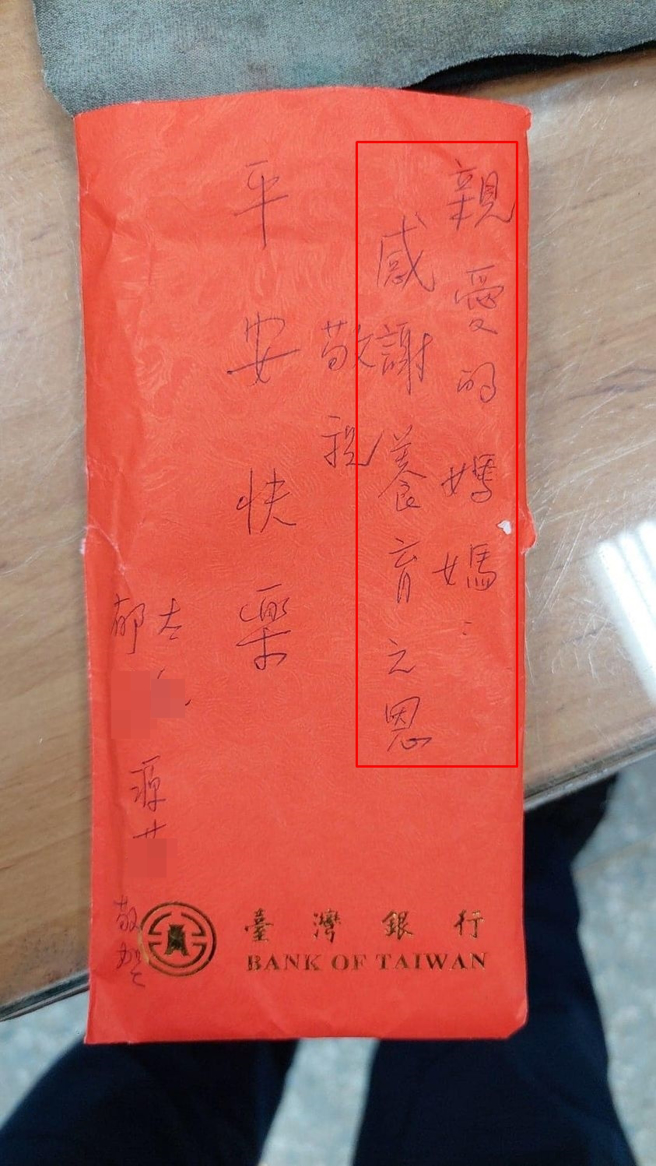 親愛的媽媽：
感謝養育之恩
敬祝
平安快樂
郁
敬賀
臺灣銀行
BANK OF TAIWAN